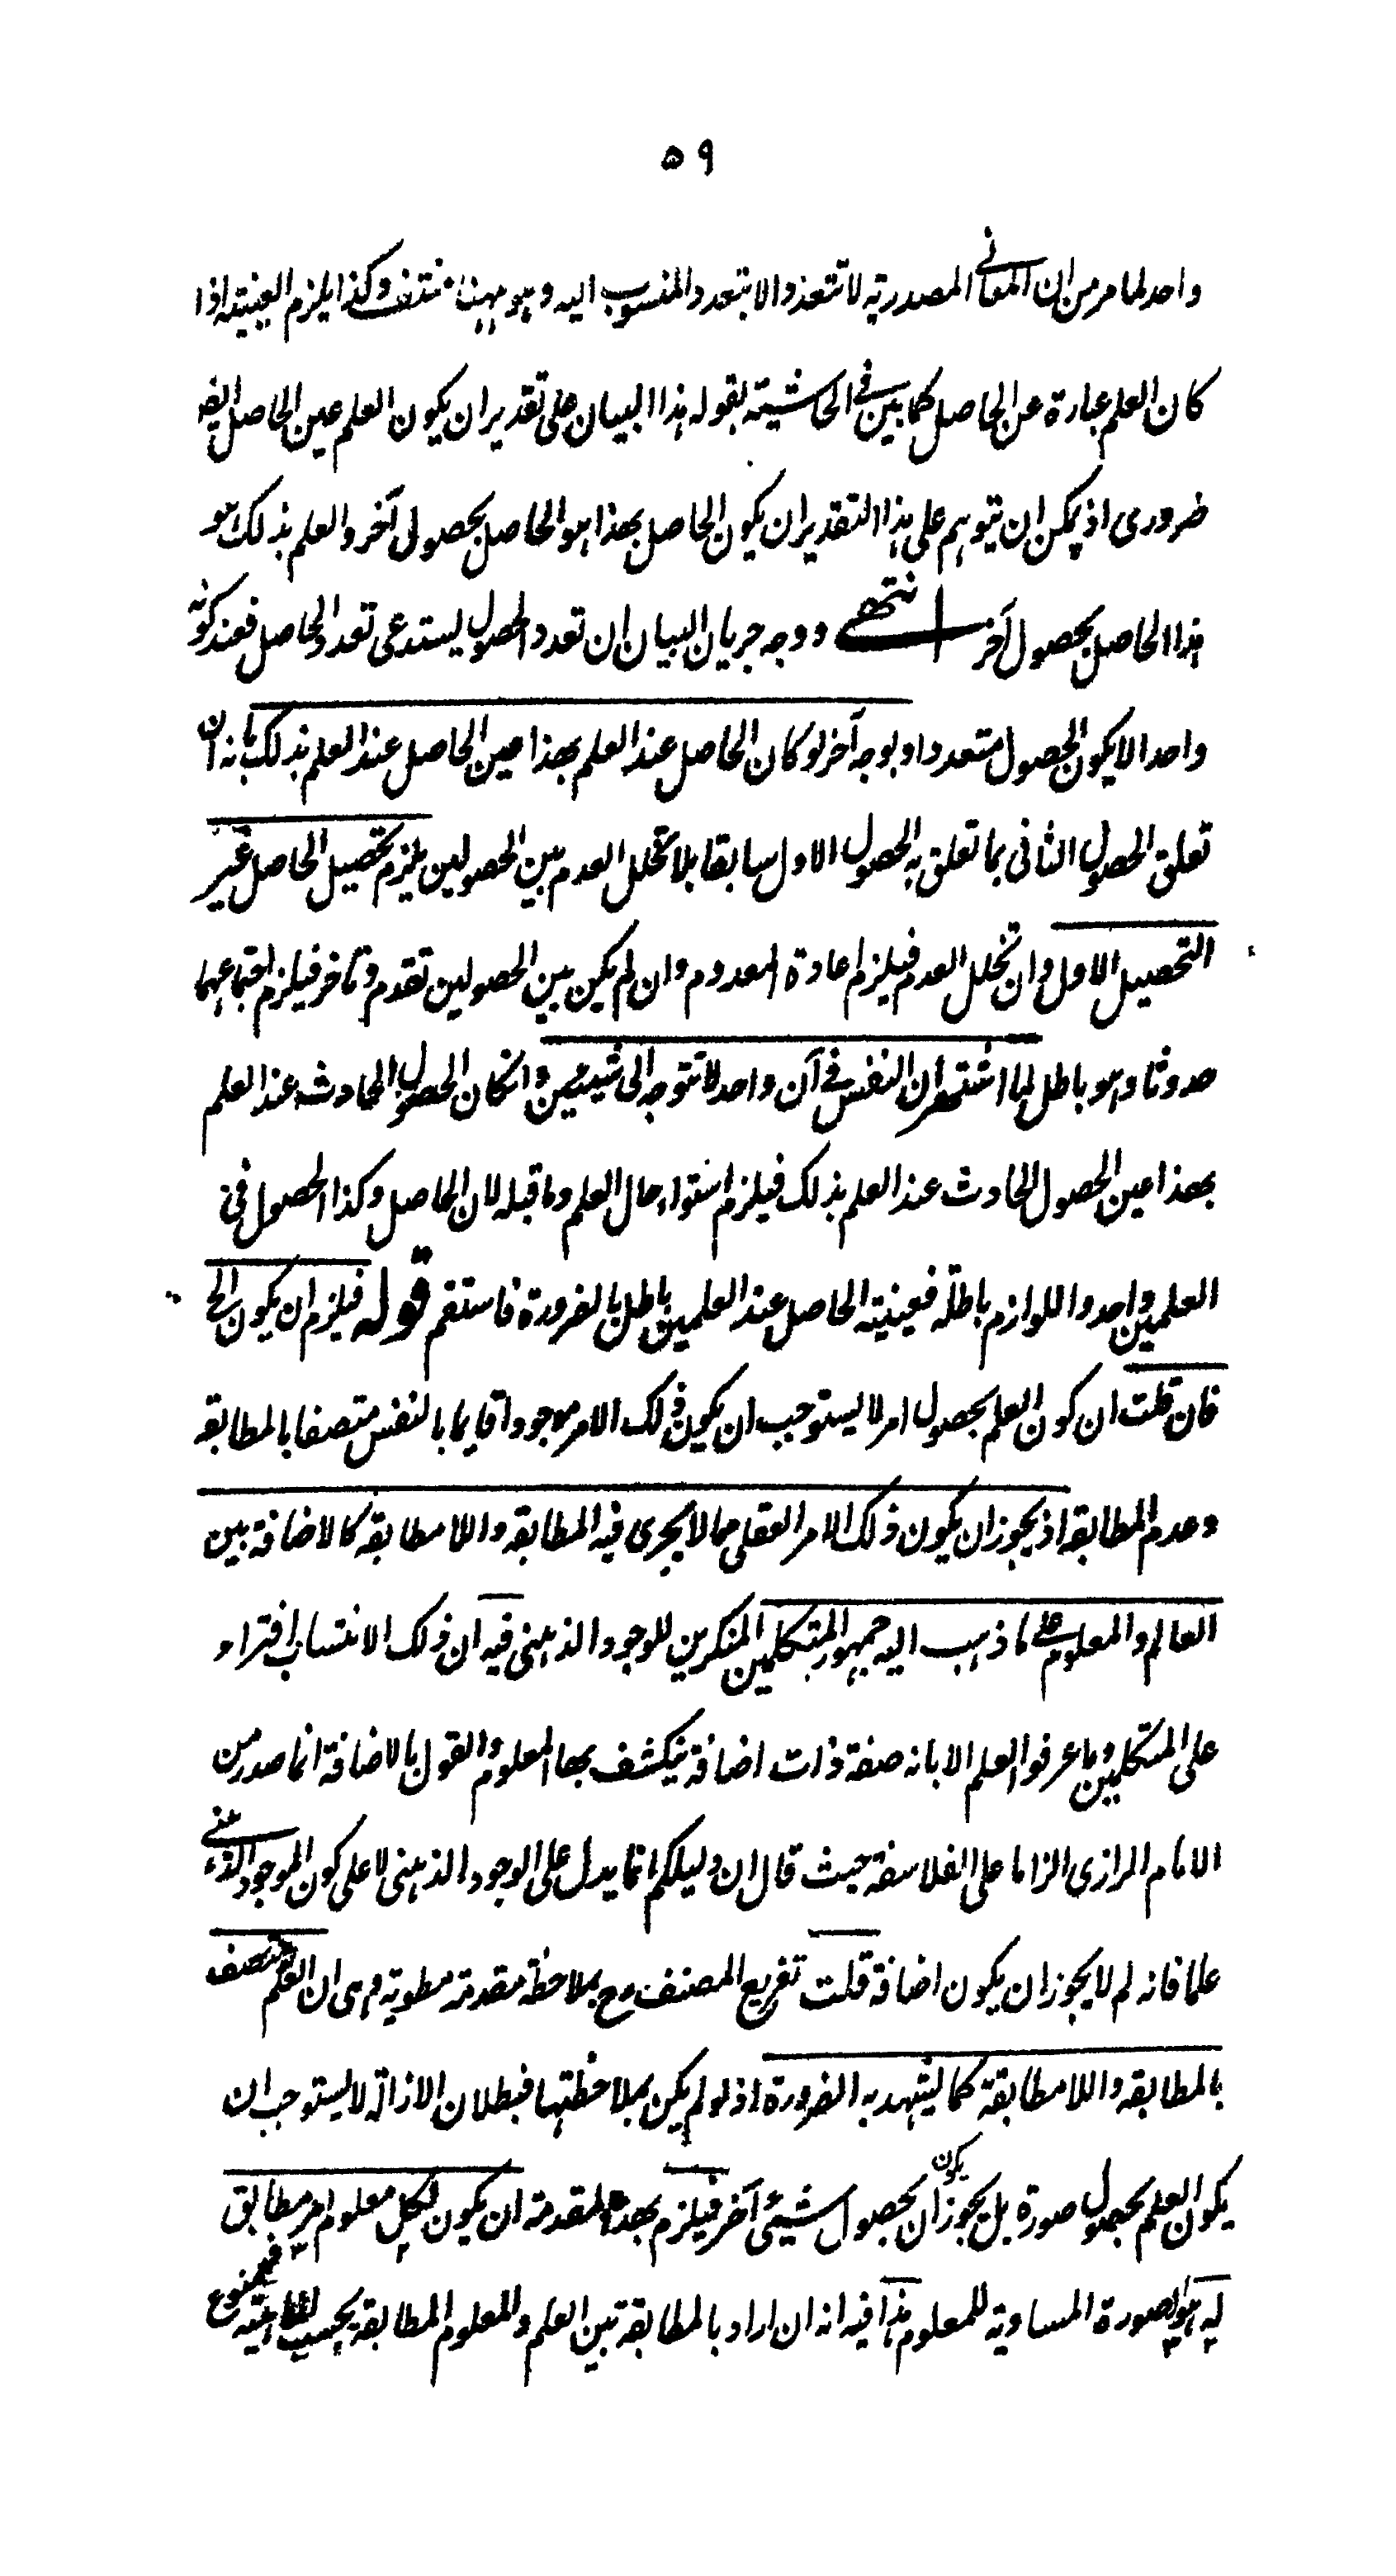 ٥٩
واحد لما مر من ان المعانى المصدرية لا تتعدد الا بتعدد المنسوب اليه وهو ههنا منتف وكذا يلزم العينية اذا
كان العلم عبارة عن الحاصل كما بين فى الحاشية بقوله هذا البيان على تقدير ان يكون العلم عين الحاصل ايضا
ضرورى اذ يمكن ان يتوهم على هذا التقدير ان يكون الحاصل بهذا هو الحاصل بحصولى آخر والعلم بذلك هو
هذا الحاصل بحصول آخر انتهى ووجه جريان البيان ان تعدد الحصول يستدعى تعدد الحاصل فعند كونه
واحدا لا يكون الحصول متعددا وبوجه آخر لو كان الحاصل عند العلم بهذا عين الحاصل عند العلم بذلك بانه ان
تعلق الحصول الثانى بما تعلق به الحصول الاول سابقا بلا تخلل العدم بين الحصولين يلزم تحصيل الحاصل غير
التحصيل الاول وان تخلل العدم فيلزم اعادة المعدوم وان لم يكن بين الحصولين تقدم وتاخر فيلزم اجتماعهما
حدوثا وهو باطل لما اشتهر ان النفس فى آن واحد لا تتوجه الى شيئين وان كان الحصول الحادث عند العلم
بهذا عين الحصول الحادث عند العلم بذلك فيلزم استواء حال العلم وما قبله لان الحاصل وكذا الحصول فى
العلمين واحد واللوازم باطلة فعينية الحاصل عند العلمين باطل بالضرورة فاستقم قوله فيلزم ان يكون الخ
فان قلت ان كون العلم بحصول امر لا يستوجب ان يكون ذلك الامر موجودا قايما بالنفس متصفا بالمطابقه
وعدم المطابقه اذ يجوز ان يكون ذلك الامر العقلى مما لا يجرى فيه المطابقه واللا مطابقه كالاضافة بين
العالم والمعلوم على ما ذهب اليه جمهور المتكلمين المنكرين للوجود الذهنى فيه ان ذلك الانتساب افتراء
على المتكلمين وما عرفوا العلم الا بانه صفة ذات اضافة ينكشف بها المعلوم والقول بالاضافة انما صدر من
الامام الرازى الزاما على الفلاسفة حيث قال ان دليلكم انما يدل على الوجود الذهنى لا على كون الموجود الذهنى
علما فانه لم لا يجوز ان يكون اضافة قلت تفريع المصنف رح بملاحظة مقدمة مطوية وهى ان العلم متصف
بالمطابقه واللا مطابقة كما يشهد به الضرورة اذ لو لم يكن بملاحظتها فبطلان الازالة لا يستوجب ان
يكون العلم بحصول صورة بل يجوز ان يكون بحصول شيئى آخر فيلزم بهذه المقدمة ان يكون لكل معلوم امر مطابق
له هو الصورة المساوية للمعلوم هذا فيه انه ان اراد بالمطابقة بين العلم والمعلوم المطابقة بحسب الماهية فممنوع